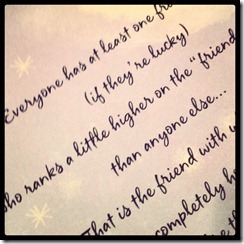 Everyone has at least one
(if they're lucky)
ranks a little higher on the "friend
than anyone else...
That is the friend with
completely